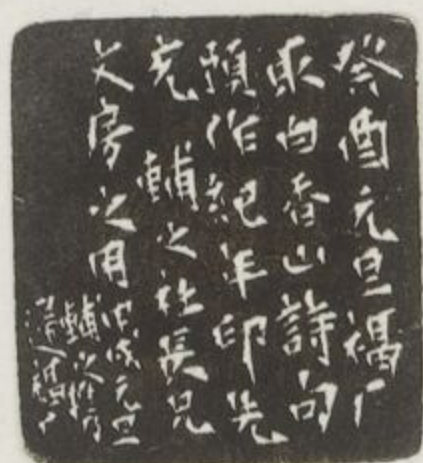 癸酉元旦福厂
取白香山詩句
預作紀年印先
充 輔之社長兄
文房之用
戌元旦
輔之
福厂